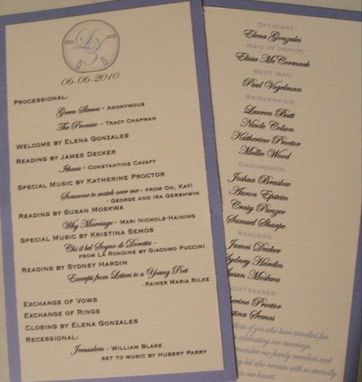 06-06-2010
Processional:
Green Sleeves - Anonymous
The Promise - Tracy Chapman
Welcome by Elena Gonzales
Reading by James Decker
Ithaca - Constantine Cavafy
Special Music by Katherine Proctor
Someone to watch over me - from Oh, Kay!
George and Ira Gershwin
Reading by Susan Moskwa
Why Marriage - Mari Nichols-Haining
Special Music by Kristina Semos
Chi il bel Sogno di Doretta -
from La Rondine by Giacomo Puccini
Reading by Sydney Hardin
Excerpts from Letters to a Young Poet
- Rainer Maria Rilke
Exchange of Vows
Exchange of Rings
Closing by Elena Gonzales
Recessional:
Jerusalem - William Blake
set to music by Hubert Parry
Officiant:
Elena Gonzales
Maid of Honor:
Elisia McCormack
Best Man:
Paul Vogelman
Bridesmaids:
Lauren Butt
Nicole Colson
Katherine Proctor
Mollie Wood
Groomsmen:
Joshua Braslow
Aaron Epstein
Craig Panzer
Samuel Sharpe
Readers
James Decker
Sydney Hardin
Moskwa
Proctor
Semos
of you who have travelled far,
celebrating our marriage.
remember our family members and
in our hearts.